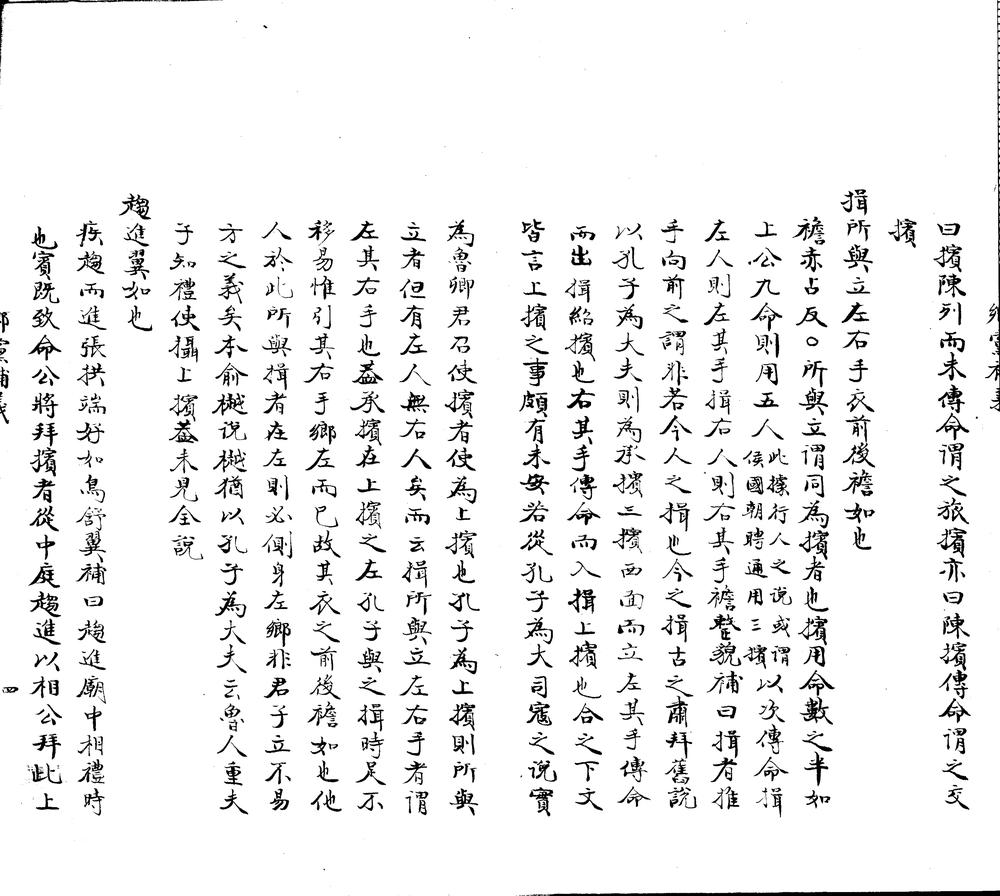 曰擯陳列而未傳命謂之旅擯亦曰陳擯傳命謂之交
擯
揖所與立左右手衣前後襜如也
襜赤占反○所與立謂同為擯者也擯用命數之半如
上公九命則用五人此據行人之说或謂侯國朝聘通用三擯以次傳命揖
左人則左其手揖右人則右其手襜整貌補曰揖者推
手向前之謂非若今人之揖也今之揖古之肅拜舊說
以孔子為大夫則為承擯三擯西面而立左其手傳命
而出揖紹擯也右其手傳命而入揖上擯也合之下文
皆言上擯之事頗有未安若從孔子為大司寇之说實
為魯卿君召使擯者使為上擯也孔子為上擯則所與
立者但有左人無右人矣而云揖所與立左右手者謂
左其右手也蓋承擯在上擯之左孔子與之揖時足不
移易惟引其右手鄉左而已故其衣之前後襜如也他
人於此所與揖者在左則必側身左鄉非君子立不易
方之義矣本俞樾说樾猶以孔子為大夫云魯人重夫
子知禮使攝上擯蓋未見全說
趨進翼如也
疾趨而進張拱端好如鳥舒翼補曰趨進廟中相禮時
也賓既致命公將拜擯者從中庭趨進以相公拜此上
四